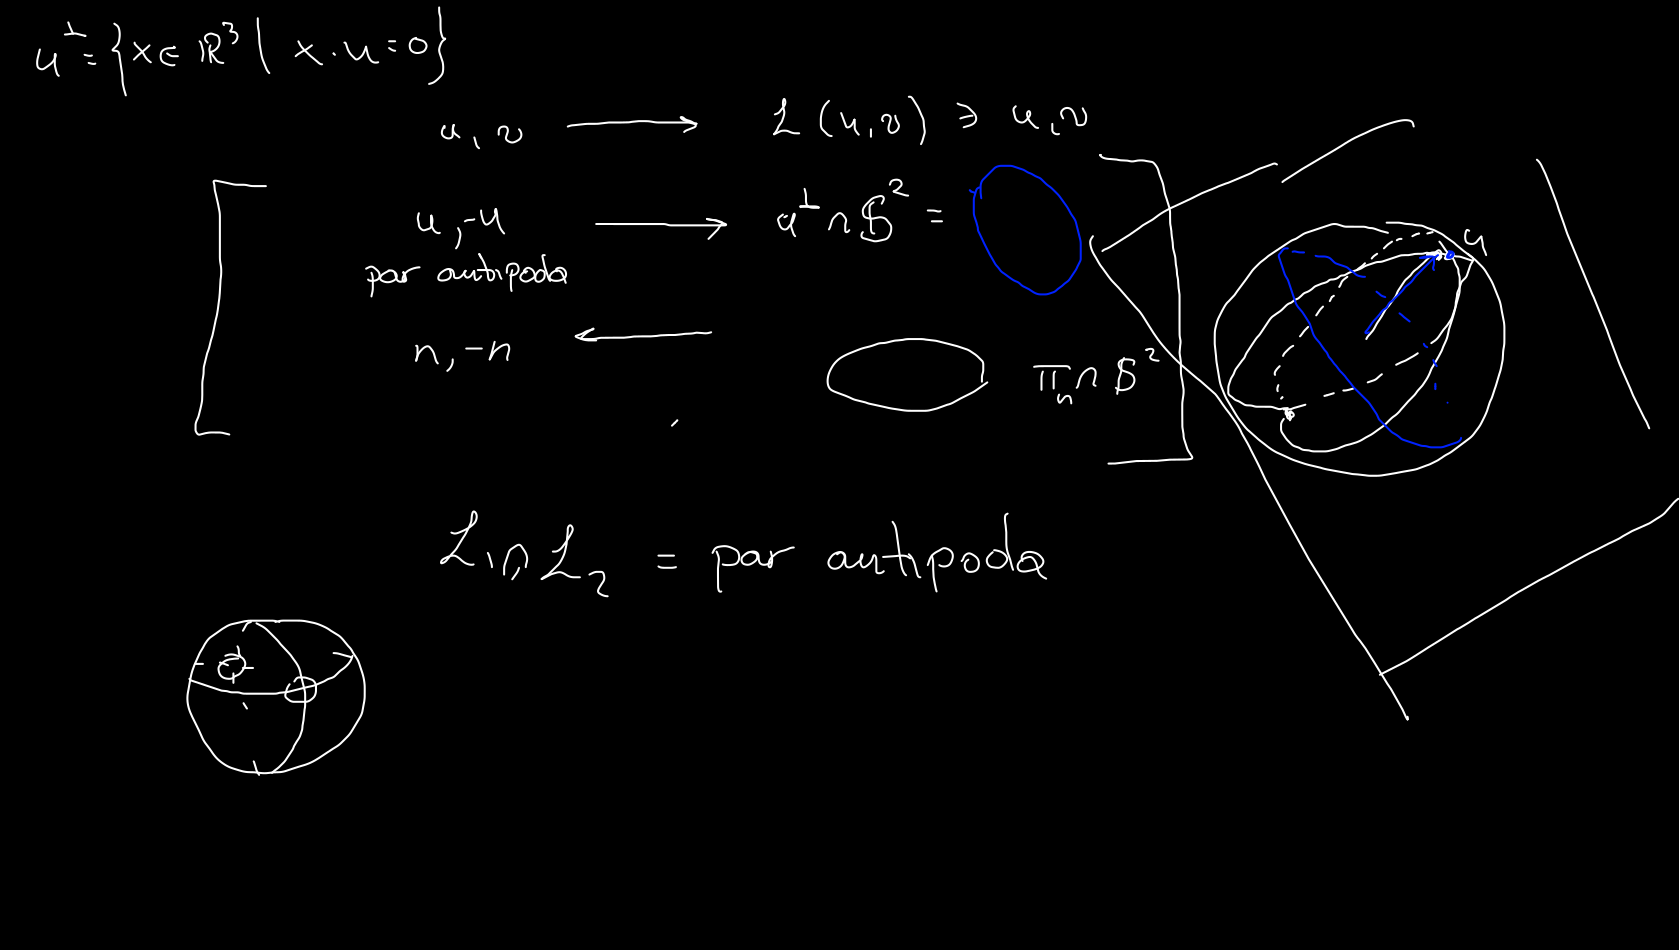 u^⊥ = {x ∈ ℝ³ | x · u = 0}
u, v ⟶ L(u, v) ∋ u, v
u, -u ⟶ u^⊥ ∩ 𝕊² =
par antipoda
u
n, -n ⟵ π_n ∩ 𝕊²
L₁ ∩ L₂ = par antipoda